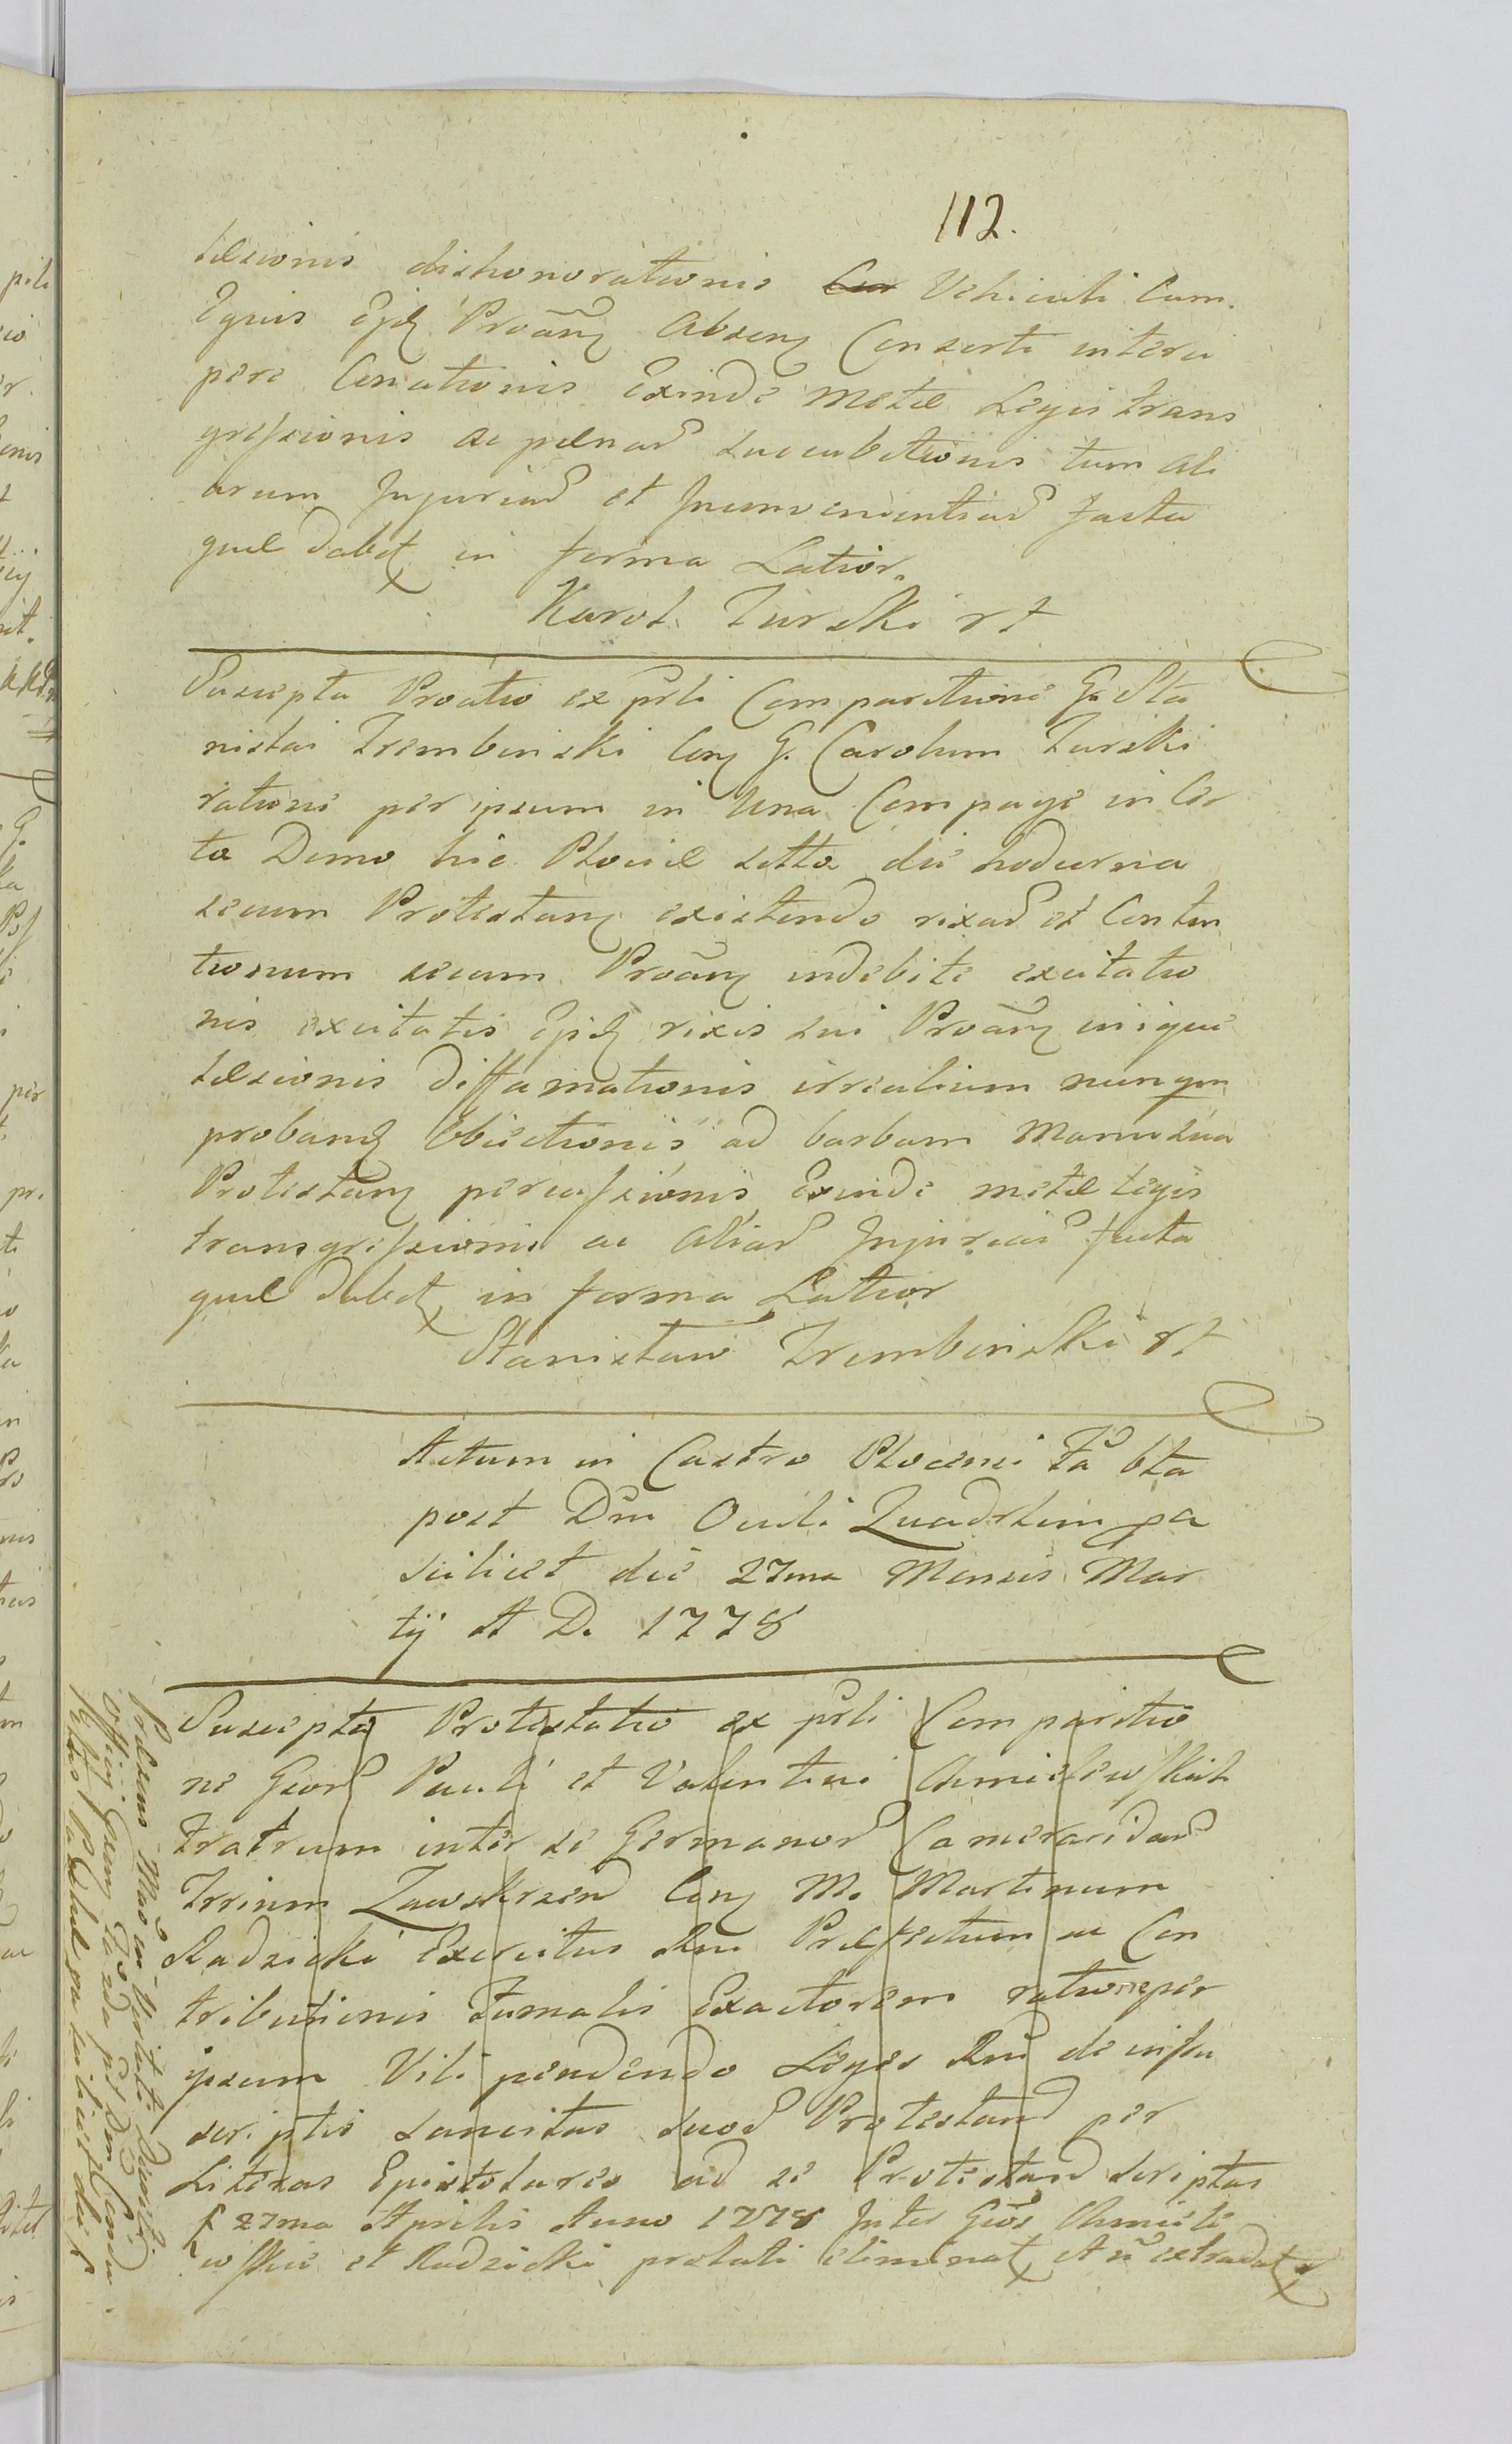 112.
læsionis dishonorationis Vehiculi Cum
Equis Ejd Proañ Absen Conserti interci
pere Conationis Exinde metæ Legis trans
gressionis ac pænar succubitionis tum ali
arum Injuriar et Inconvenientiar facta
quæ dabet in forma Latior.
Karol Turski
Suscepta Proatio ex prli Comparitione G. Sta
nislai Trembinski Con G. Carolum Turski
ratione per ipsum in Una Compage in Cer
ta Domo hic Plociæ sitta die hodierna
secum Protestan existendo rixar et Conten
tionum secum Proañ indebite excitatio
nis excitatis Ejsd rixis sui Proañ inique
læsionis diffamationis irrealium nunqm
proband Obiectionis ad barbam Manu sua
Protestan percussionis Exinde metæ legis
transgressionis ac Aliar Injuriar facta
quæ dabet in forma Latior
Stanisław Trembinski
Actum in Castro Plocensi Fa 6ta
post Dm Oculi Quadrlim pa
scilicet die 27ma Mensis Mar
tij A D. 1778
Suscepta Protestatio ex prli Comparitio
ne Gsor Pauli et Valentini Chmielewskich
Fratrum inter se Germanor Cameraridar
Trrium Zawskrzen Con M. Martinum
Radzicki Exercitus Rni Præfectum ac Con
tributionis Fumalis Exactorem ratione per
ipsum Vili pendendo Leges Rni de infra
scriptis sancitas suos Protestand per
Literas Epistolares ad se Protestand scriptas
27ma Aprilis Anno 1778 Inter Gsos Chmiele
wskie et Radzicki prolati eliminat et extradat